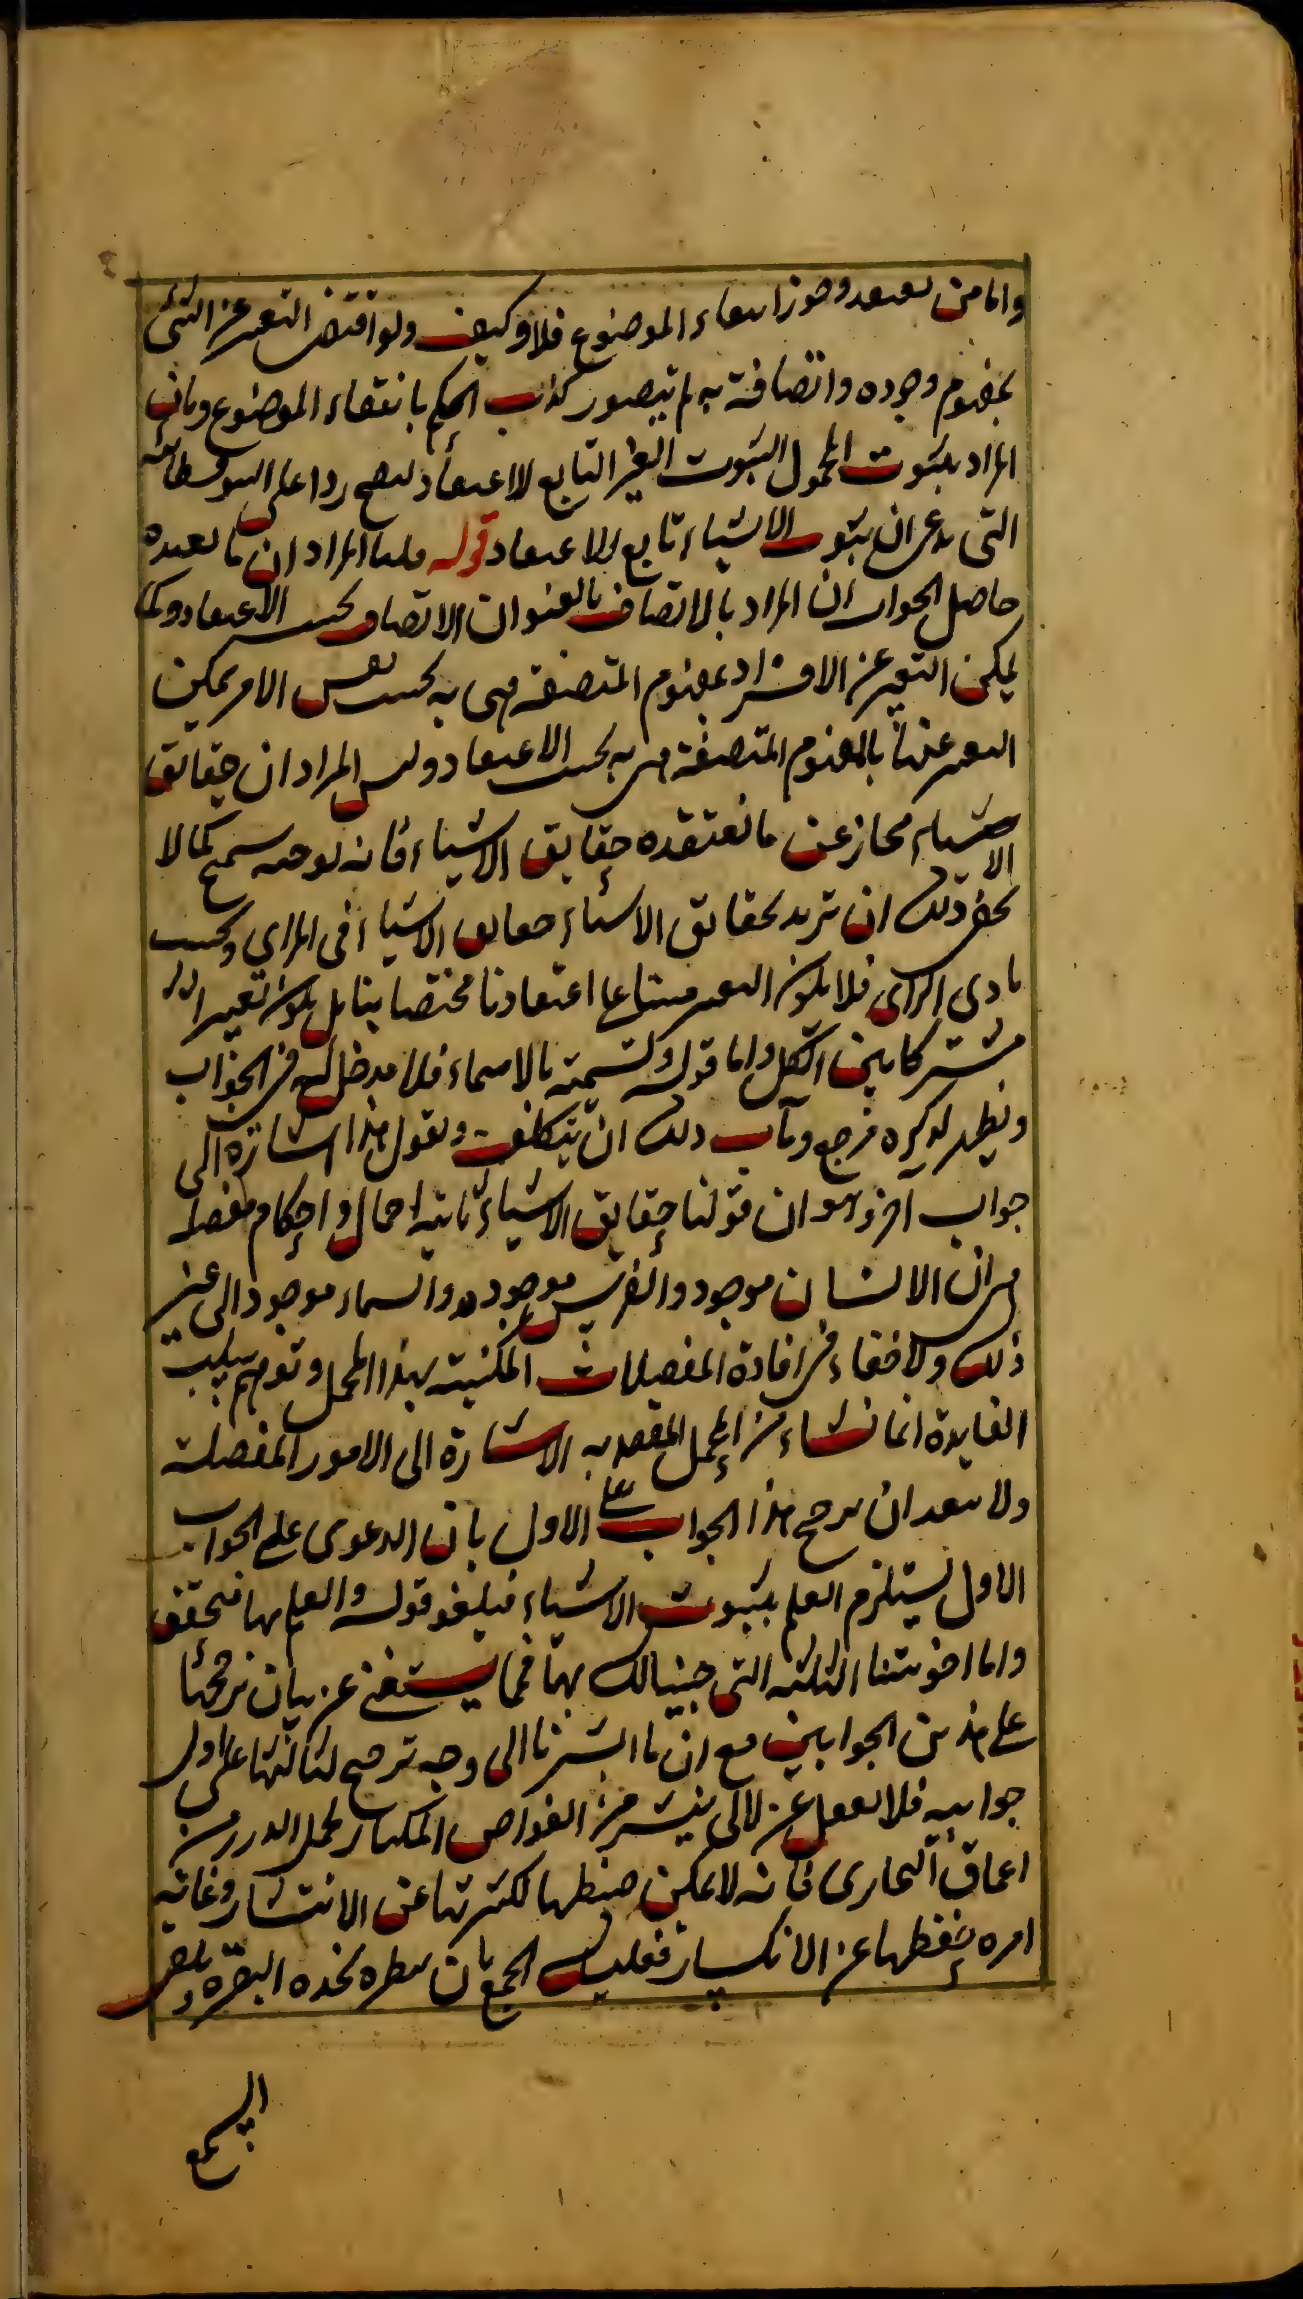 واما من يعتقد وجوز انتفاء الموضوع فلا وكيف ولو اقتضى التعبير عن الشئ
بمفهوم وجوده واتصافه به لم يتصور كذب الحكم بانتفاء الموضوع وبان
المراد بثبوت المحمول الثبوت الغير التابع للاعتقاد ليصح ردا على السوفسطائية
التى تدعى ان ثبوت الاشياء تابع للاعتقاد قوله قلنا المراد ان ما نعتقده
حاصل الجواب ان المراد بالاتصاف بالعنوان الاتصاف بحسب الاعتقاد وكما
يمكن التعبير عن الافراد بمفهوم المتصفة هى به بحسب نفس الامر يمكن
التعبير عنها بالمفهوم المتصفة هى به بحسب الاعتقاد وليس المراد ان حقايق
الاشياء مجاز عن ما نعتقده حقايق الاشياء فانه توجيه سمج كما لا
يخفى ولك ان تريد بحقايق الاشياء حقايق الاشياء فى الراى وبحسب
بادى الراى فلا يكون التعبير مبنيا على اعتقادنا مختصا بنا بل يكون تعبيرا
مشتركا بين الكل واما قوله وتسميته بالاسماء فلا مدخل له فى الجواب
ونظير لذكره مرجع ومآب ولك ان تتكلف وتقول هذا اشارة الى
جواب اخر وهو ان قولنا حقايق الاشياء ثابتة اجمال واحكام مفصلة
هى ان الانسان موجود والفرس موجود والسماء موجود الى غير
ذلك ولا خفاء فى افادة المفصلات المكنية بهذا المجمل وتوهم سلب
الفايدة انما نشاء من المجمل المقصد به الاشارة الى الامور المفصلة
ولا يبعد ان يرجح هذا الجواب على الاول بان الدعوى على الجواب
الاول يستلزم العلم بثبوت الاشياء فيلغو قوله والعلم بها متحقق
واما اجوبتنا الثلثة التى جئنا لك بها فما يستغنى عن بيان ترجحها
على هذين الجوابين مع ان ما اشرنا الى وجه ترجيح لثالثها على اول
جوابيه فلا تغفل عن لآلى ينثر من الغواص المكثار لحمل الدرر من
اعماق البحارى فانه لا يمكن ضبطها لكثرتها عن الانتشار وغايته
امره حفظها عن الانكسار فعليك الجمع بان
السمع